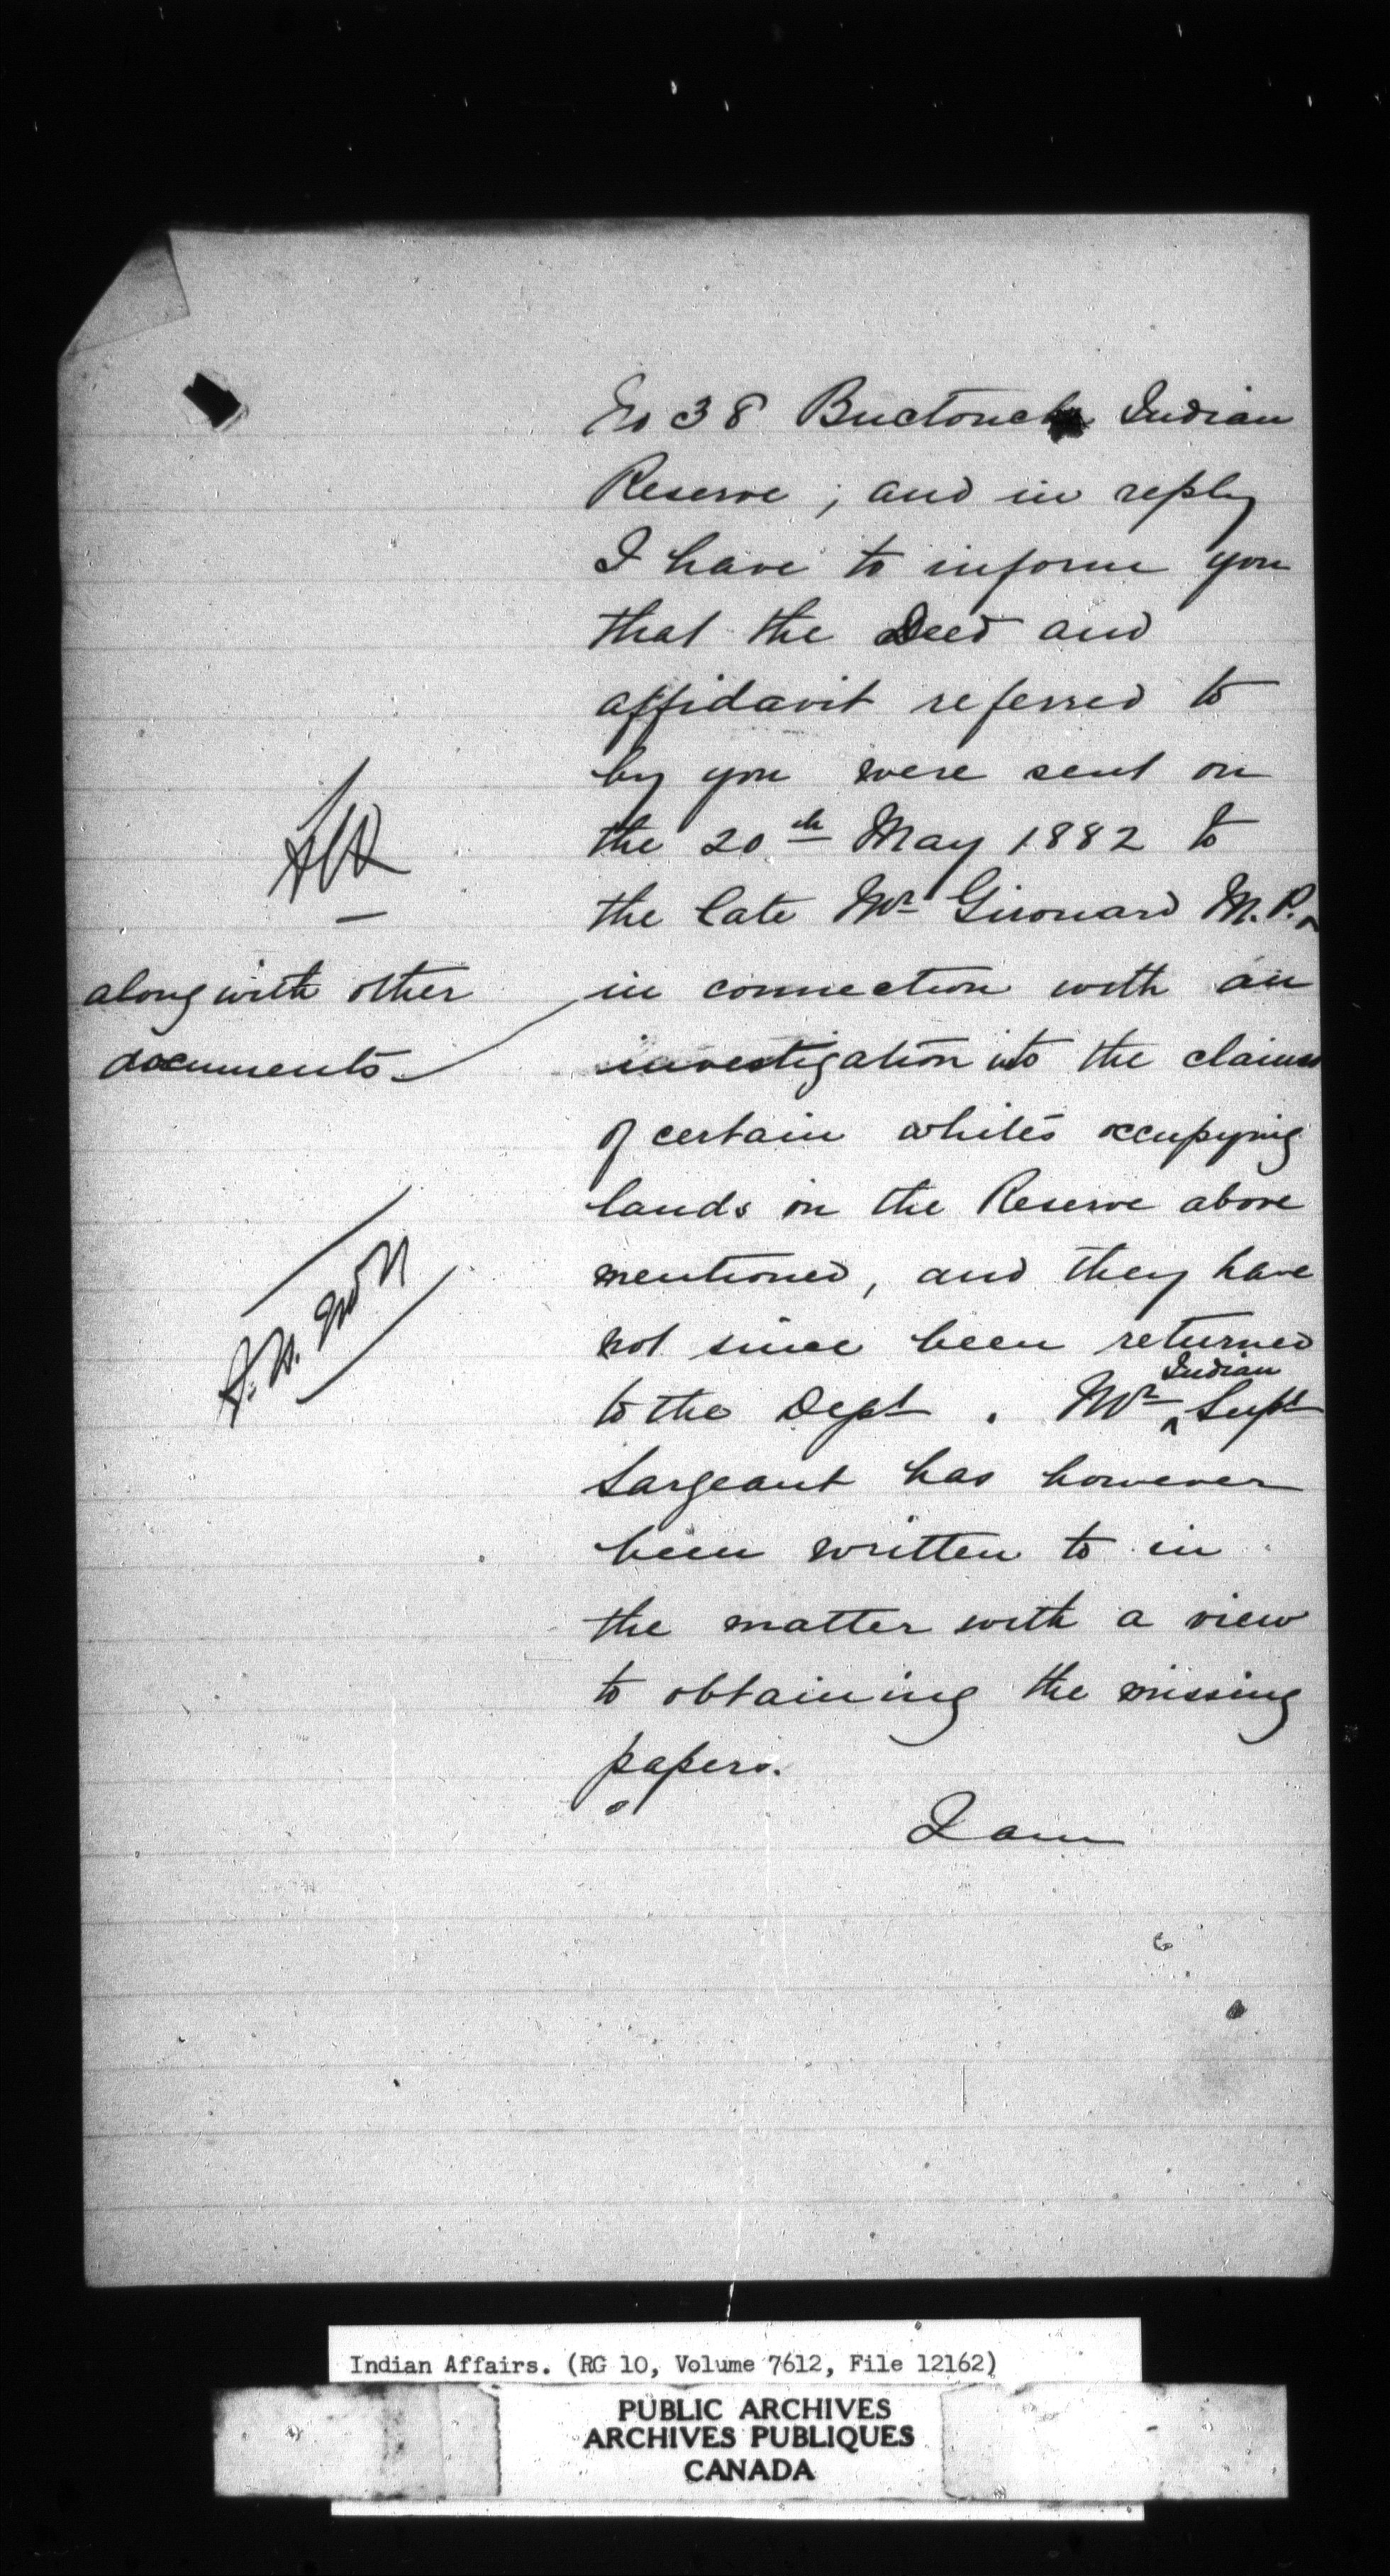 No 38 Buctouche Indian
Reserve ; and in reply
I have to inform you
that the Deed and
affidavit referred to
by you were sent on
the 20th May 1882 to
the late Mr Girouard M.P.
along with other
documents
in connection with an
investigation into the claims
of certain whites occupying
lands in the Reserve above
mentioned, and they have
not since been returned
to the Dept. Mr Indian Supt
Sargeant has however
been written to in
the matter with a view
to obtaining the missing
papers.
I am
Indian Affairs. (RG 10, Volume 7612, File 12162)
PUBLIC ARCHIVES
ARCHIVES PUBLIQUES
CANADA